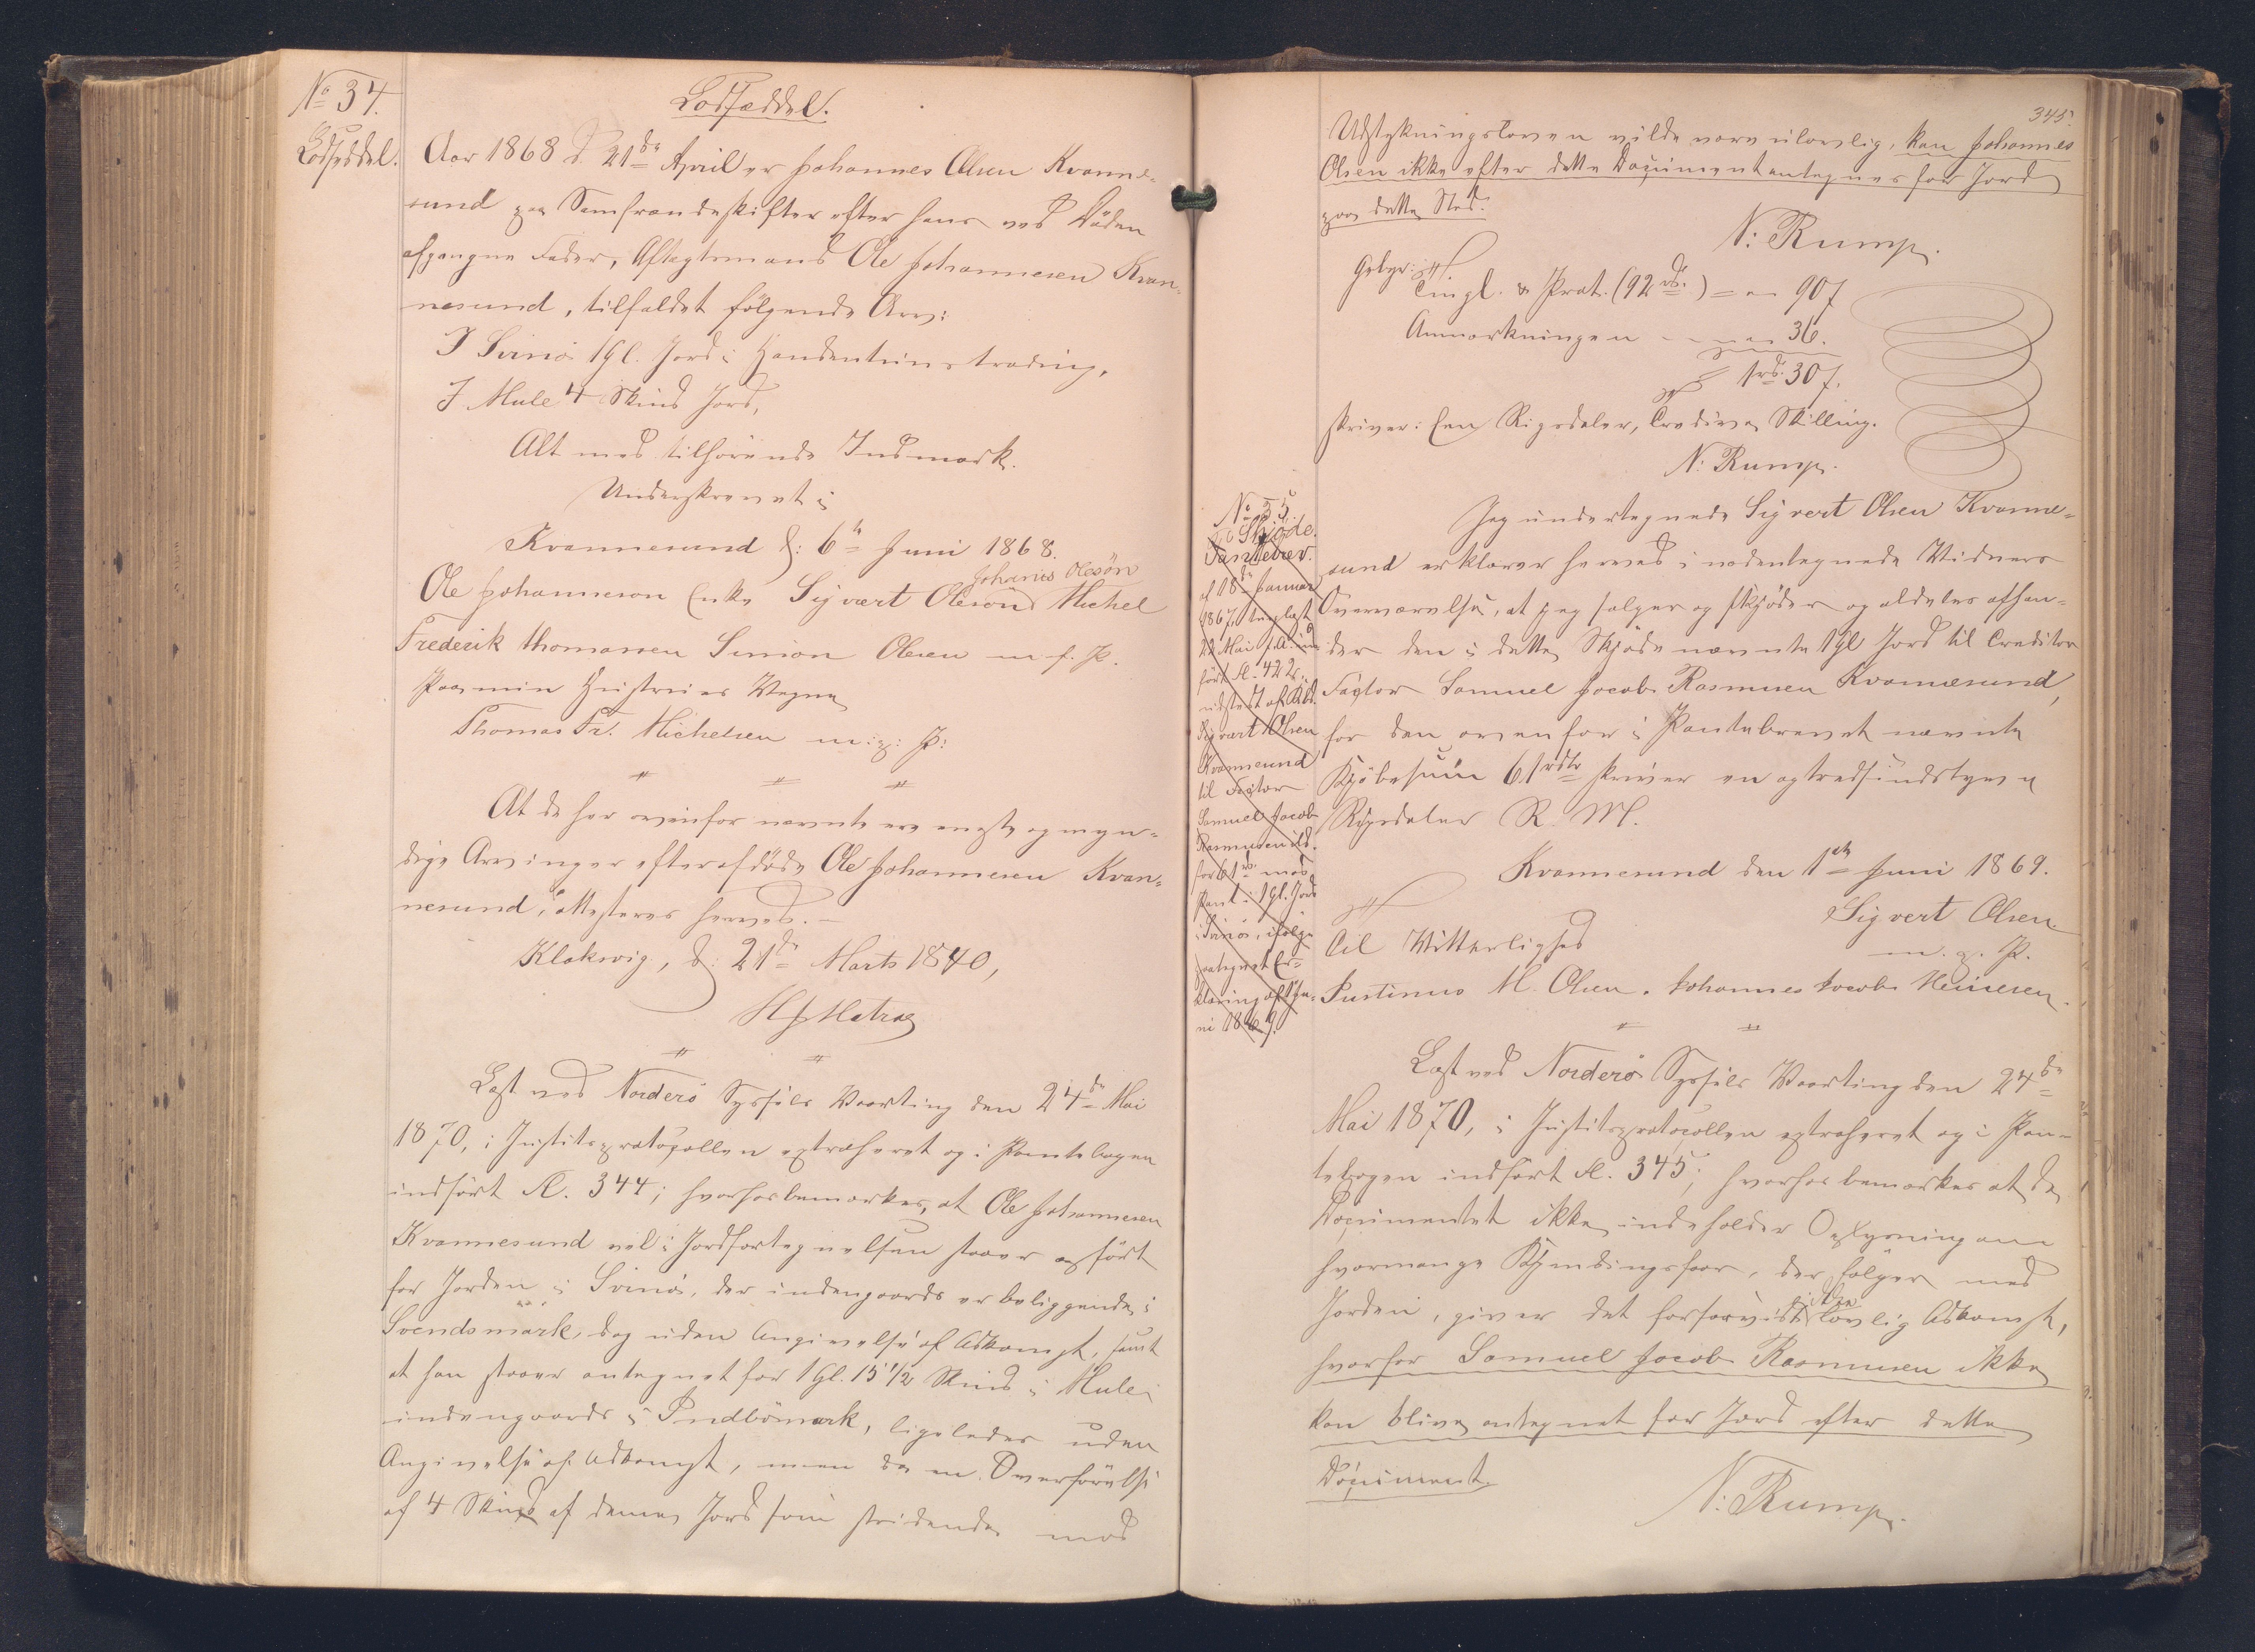 No 34.
Lodseddel.
Lodseddel.
Aar 1868 d. 21de April er Johannes Olsen Kvanne-
sund paa Samfrændeskifte efter hans ved Døden
afgangne Fader, Aftægtsmand Ole Johannesen Kvan-
nesund, tilfaldet følgende Arv:
I Svinö 1 Gl. Jord i Handentunstræding,
I Mule 4 Skind Jord,
Alt med tilhørende Indmark.
Underskrevet i
Kvannesund d: 6te Juni 1868.
Johanes Olesön
Ole Johanneson Enke Sigvært Olesön Michel
Frederik thomassen Simon Olesen m. f. P.
Paa min Hustrues Vegne
Thomas Fr. Michelsen m: p: P:
At de her ovenfor nævnte ere eneste og myn-
dige Arvinger efter afdøde Ole Johannesen Kvan-
nesund, attesteres herved.
Klaksvig, d: 21de Marts 1870,
Læst ved Norderö Syssels Vaarting den 24de Mai
1870, i Justitsprotocollen extraheret og i Pantebogen
indført Fl. 344; hvorhos bemærkes, at Ole Johannesen
Kvannesund vel i Jordfortegnelsen staaer opført
for Jorden i Svinö, der indengaards er beliggende i
Svendsmark, dog uden Angivelse af Adkomst, samt
at han staaer antegnet for 1 Gl. 15 1/2 Skind i Mule
indengaards i Indbömark, ligeledes uden
Angivelse af Adkomst, men da en Overførelse
af 4 Skind af denne Jord som stridende mod
345.
Udstykningsloven vilde være ulovlig, kan Johannes
Olsen ikke efter dette Document antegnes for Jord
paa dette Sted.
N: Rump.
Gebyr:
Tingl. & Prot. (92 rd.) = 90 ſ
Anmærkningen 36.
1 rd. 30 ſ.
skriver: Een Rigsdaler, Tredive Skilling.
N: Rump.
No 35.
Skjöde.
Pantebrev
af 18de Januar
1867, tinglæst
22 Mai s. A. ind-
ført Fl. 422,
udstedt af
Sigvart Olsen
Kvannesund
til Factor
Samuel Jacob
Rasmussen
for 61 rd. mod
Pant i 1 Gl. Jord
i Svinö, ifølge
paategnet Er-
klæring af 1 Ju-
ni 1869.
Jeg undertegnede Sigvert Olsen Kvanne-
sund erklærer herved i nedentegnede Vidners
Overværelse, at jeg sælger og skjøder og aldeles afhæn-
der den i dette Skjøde nævnte 1 Gl Jord til Creditor
Factor Samuel Jacob Rasmusen Kvannesund,
for den ovenfor i Pantebrevet nævnte
Kjøbesum 61 rdlr skriver en og tredsindstyve
Rigsdaler R. M.
Kvannesund den 1ste Juni 1869.
Sigvert Olsen.
m. p. P.
Til Vitterlighed
Justinus M. Olsen. Johannes Jacob Heinesen.
Læst ved Norderö Syssels Vaarting den 24de
Mai 1870, i Justitsprotocollen extraheret og i Pan-
tebogen indført Fl. 345; hvorhos bemærkes at da
Documentet ikke indeholder Oplysning om
hvormange Kjendingsfaar, der følger med
Jorden, giver det forsaavidt ikke lovlig Adkomst,
hvorfor Samuel Jacob Rasmusen ikke
kan blive antegnet for Jord efter dette
Document.
N: Rump.